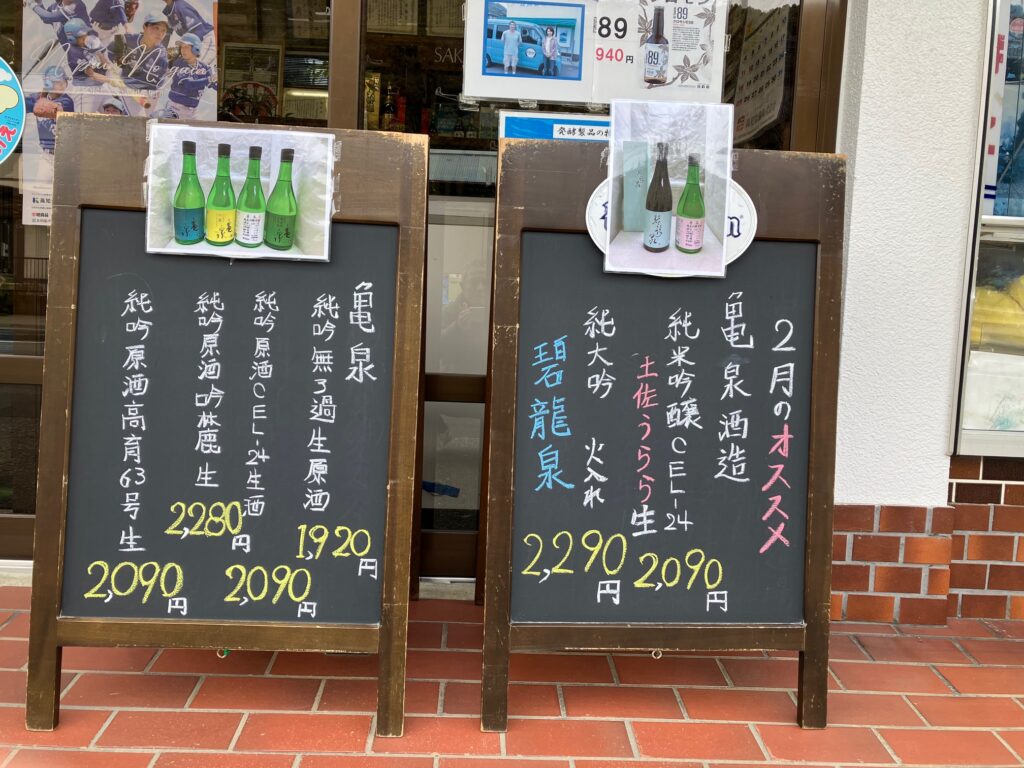 亀泉
純吟無ろ過生原酒
1,920円
純吟原酒CEL-24生酒
2,090円
純吟原酒吟麓生
2,280円
純吟原酒高育63号生
2,090円
2月のオススメ
亀泉酒造
純米吟醸CEL-24
土佐うらら生
2,090円
純大吟 火入れ
碧龍泉
2,290円
89
940円
89
SAK